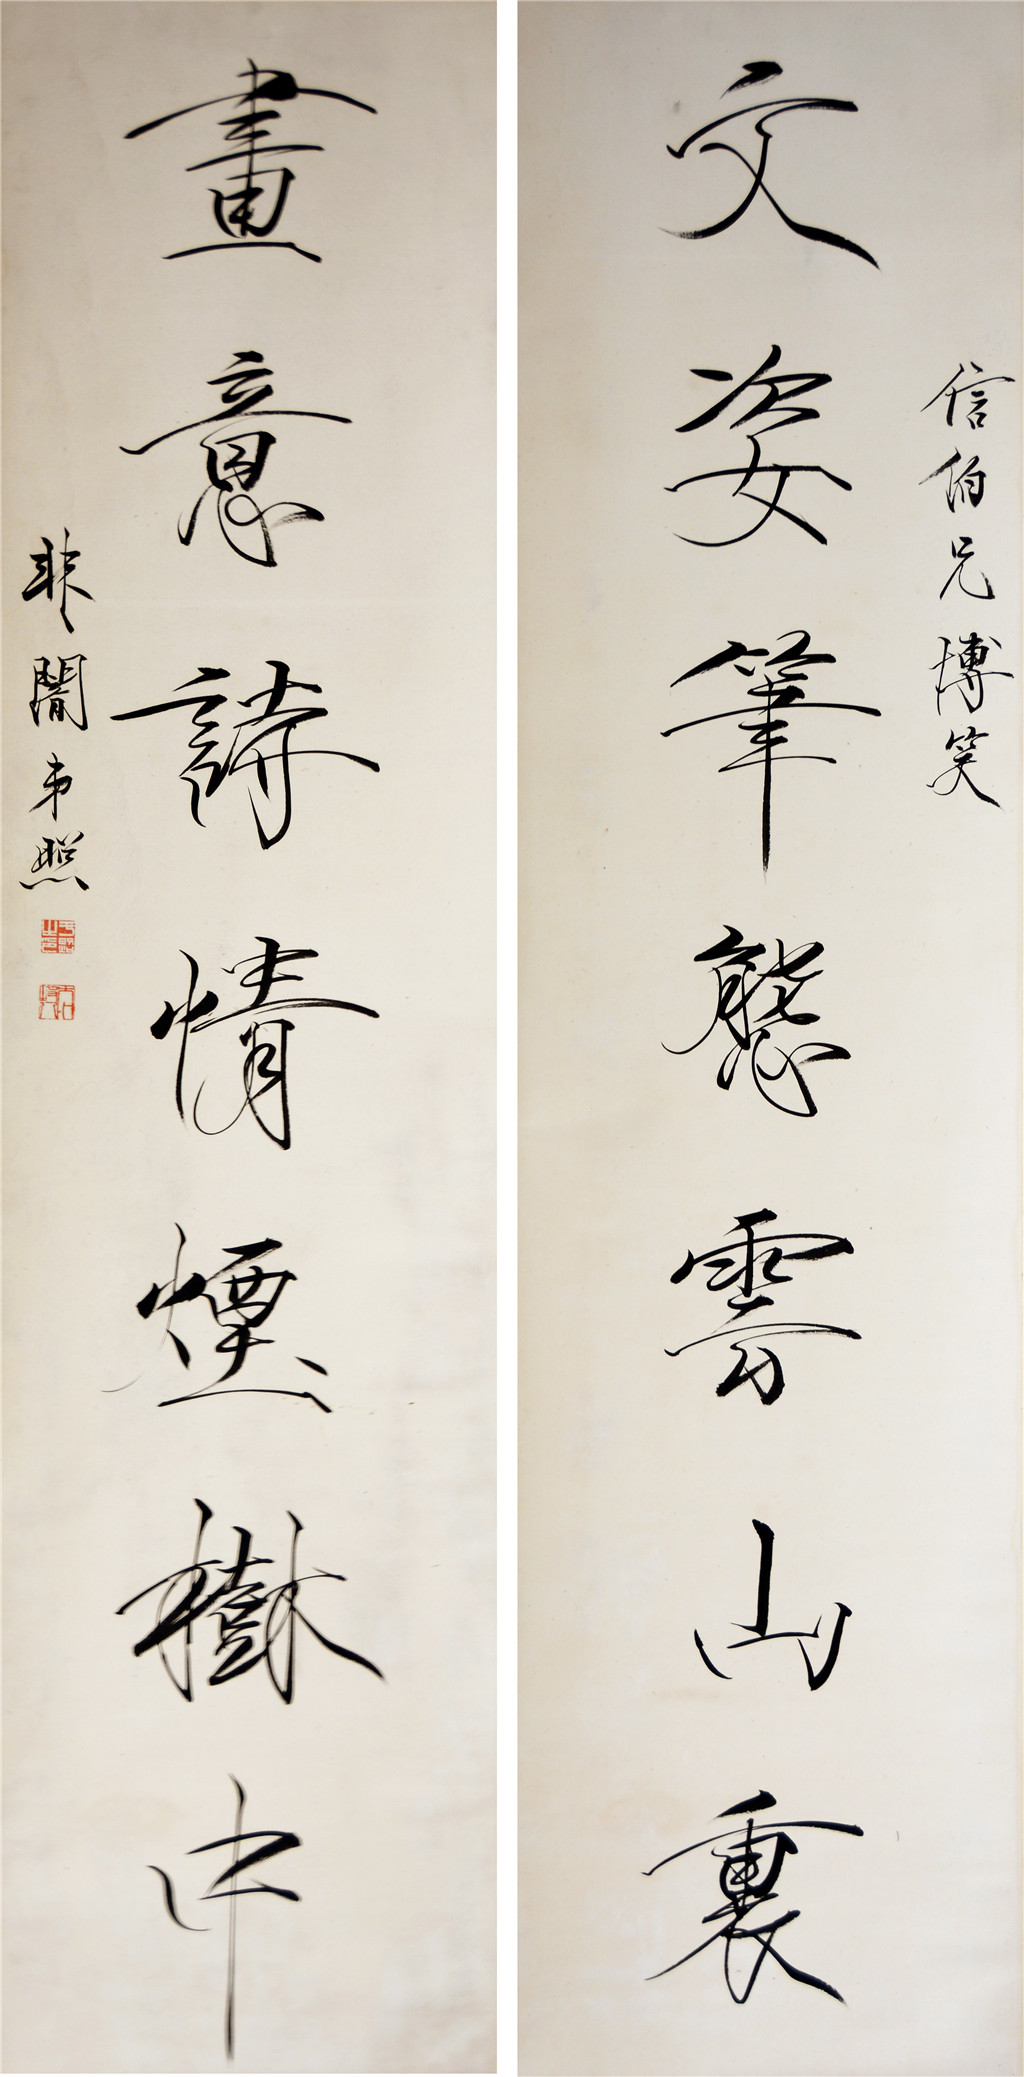 信伯兄博笑
文姿筆態雲山裏
畫意詩情煙樹中
非闇弟照